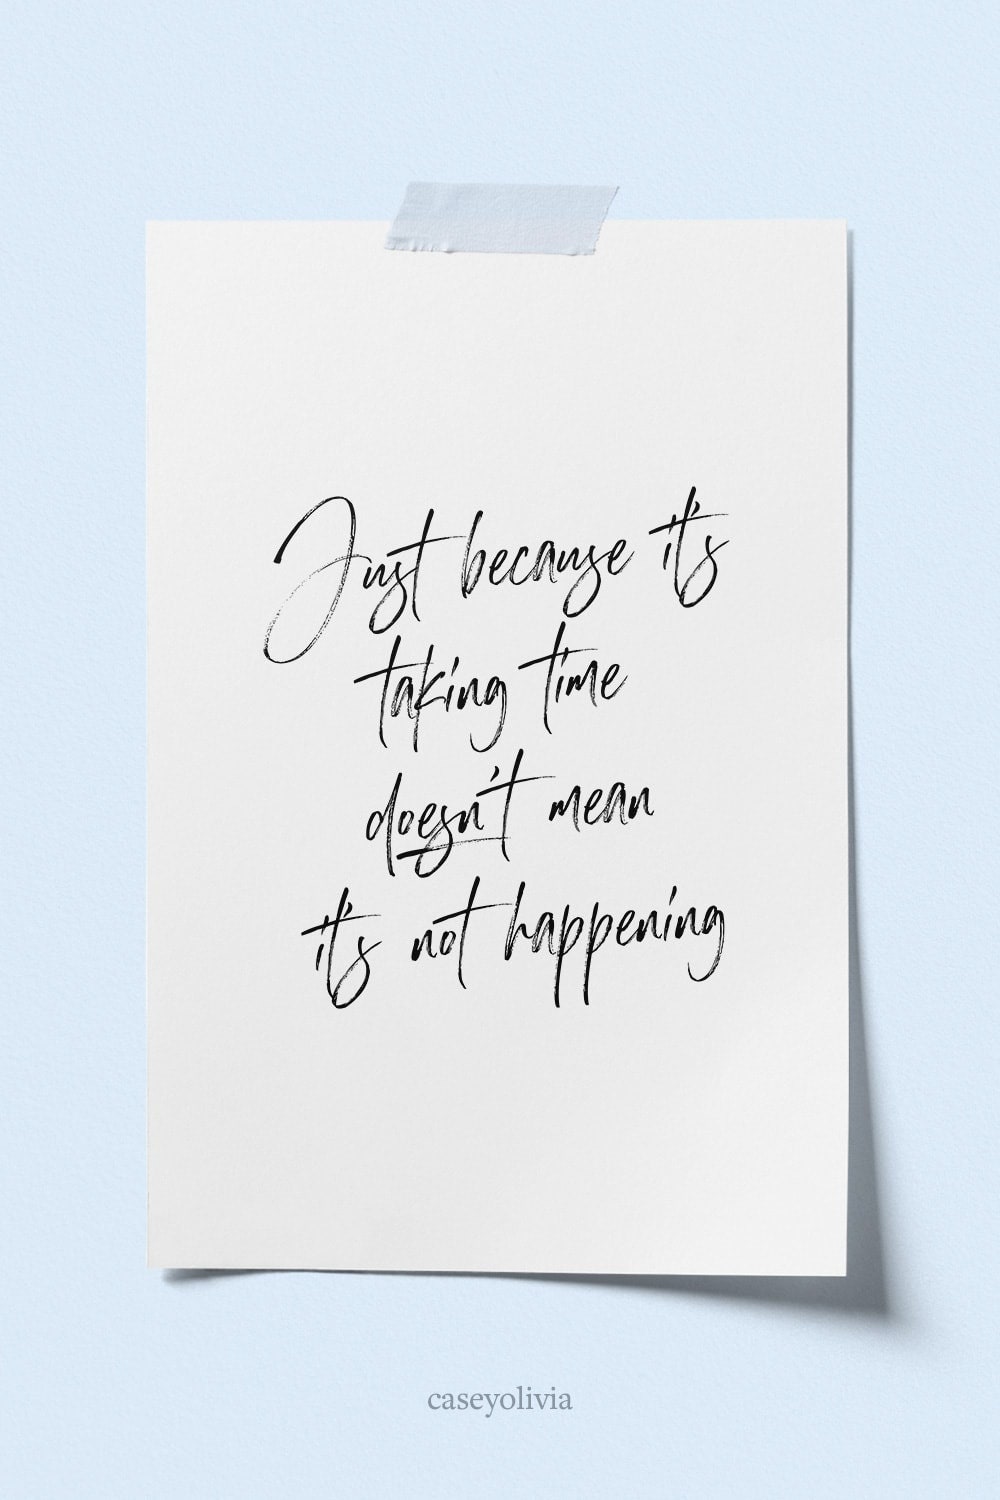 Just because it's
taking time
doesn't mean
it's not happening
caseyolivia